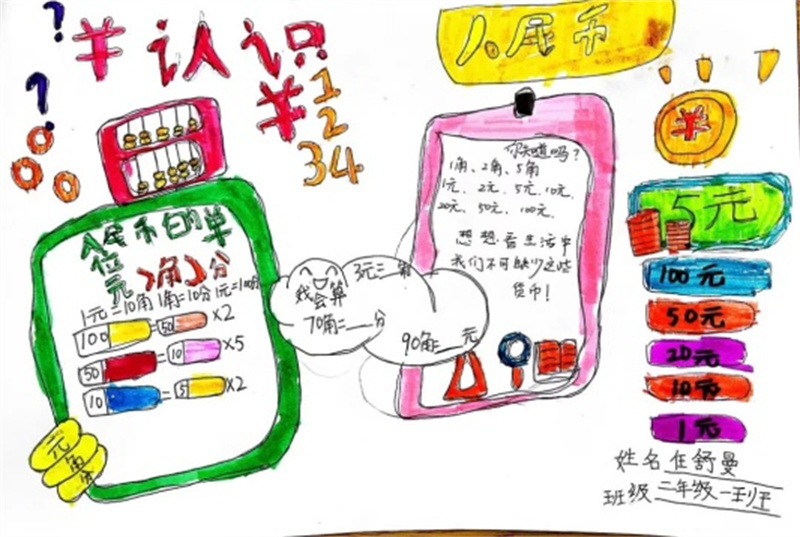 ? ¥ 认识
?
¥ 1
2
34
人民币
人民币的单
位
元、角、分
1元=10角 1角=10分 1元=100分
100 = 50 ×2
50 = 10 ×5
10 = 5 ×2
元
角
分
我会算
3元=__角
70角=__分
90角=__元
你知道吗?
1角、2角、5角
1元、2元、5元、10元、
20元、50元、100元、
想想看生活中
我们不可缺少这些
货币!
¥
5元
100元
50元
20元
10元
1元
姓名 任舒曼
班级 二年级一班